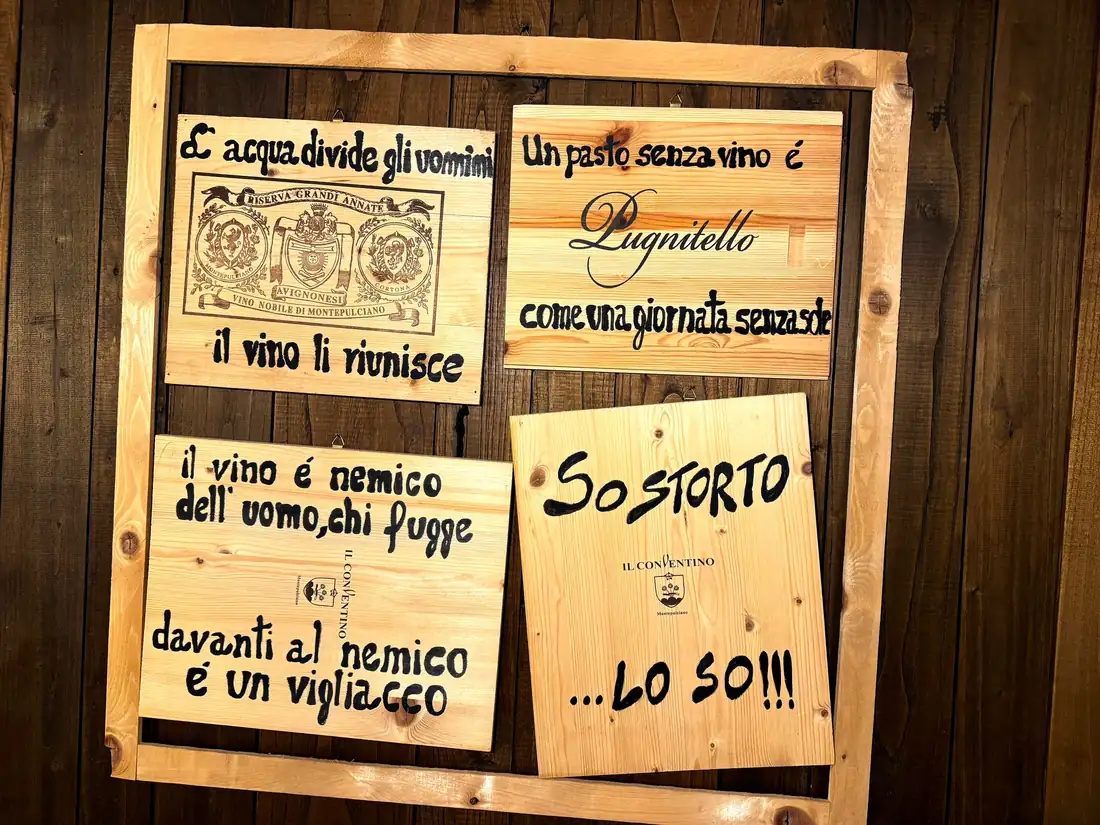 L' acqua divide gli uomini
RISERVA GRANDI ANNATE
MONTEPULCIANO
CORTONA
AVIGNONESI
VINO NOBILE DI MONTEPULCIANO
il vino li riunisce
Un pasto senza vino é
Pugnitello
come una giornata senza sole
il vino é nemico
dell' uomo, chi fugge
IL CONVENTINO
Montepulciano
davanti al nemico
é un vigliacco
So STORTO
IL CONVENTINO
Montepulciano
...LO SO!!!